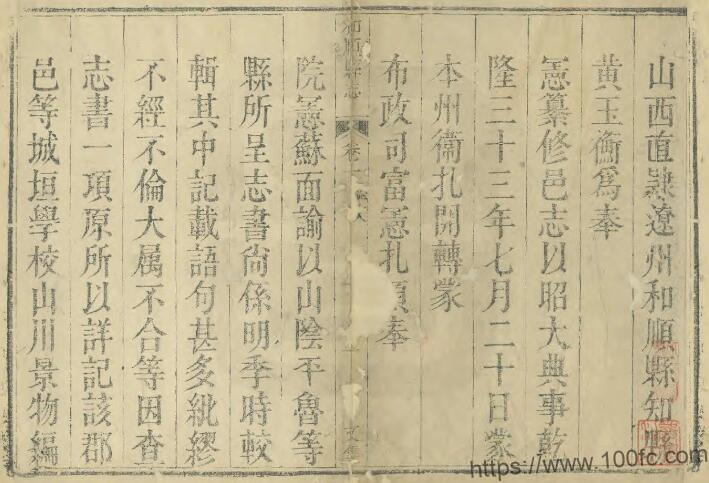 山西直隸遼州和順縣知縣
黃玉衡為奉
憲纂修邑志以昭大典事乾
隆三十三年七月二十日蒙
本州衛扎開轉蒙
布政司富憲扎頂奉
和順縣志
卷
院憲蘇面諭以山陰平魯等
縣所呈志書尚係明季時較
輯其中記載語句甚多紕繆
不經不倫大属不合等因查
志書一項原所以詳記該郡
邑等城垣學校山川景物編
https://www.100fc.com